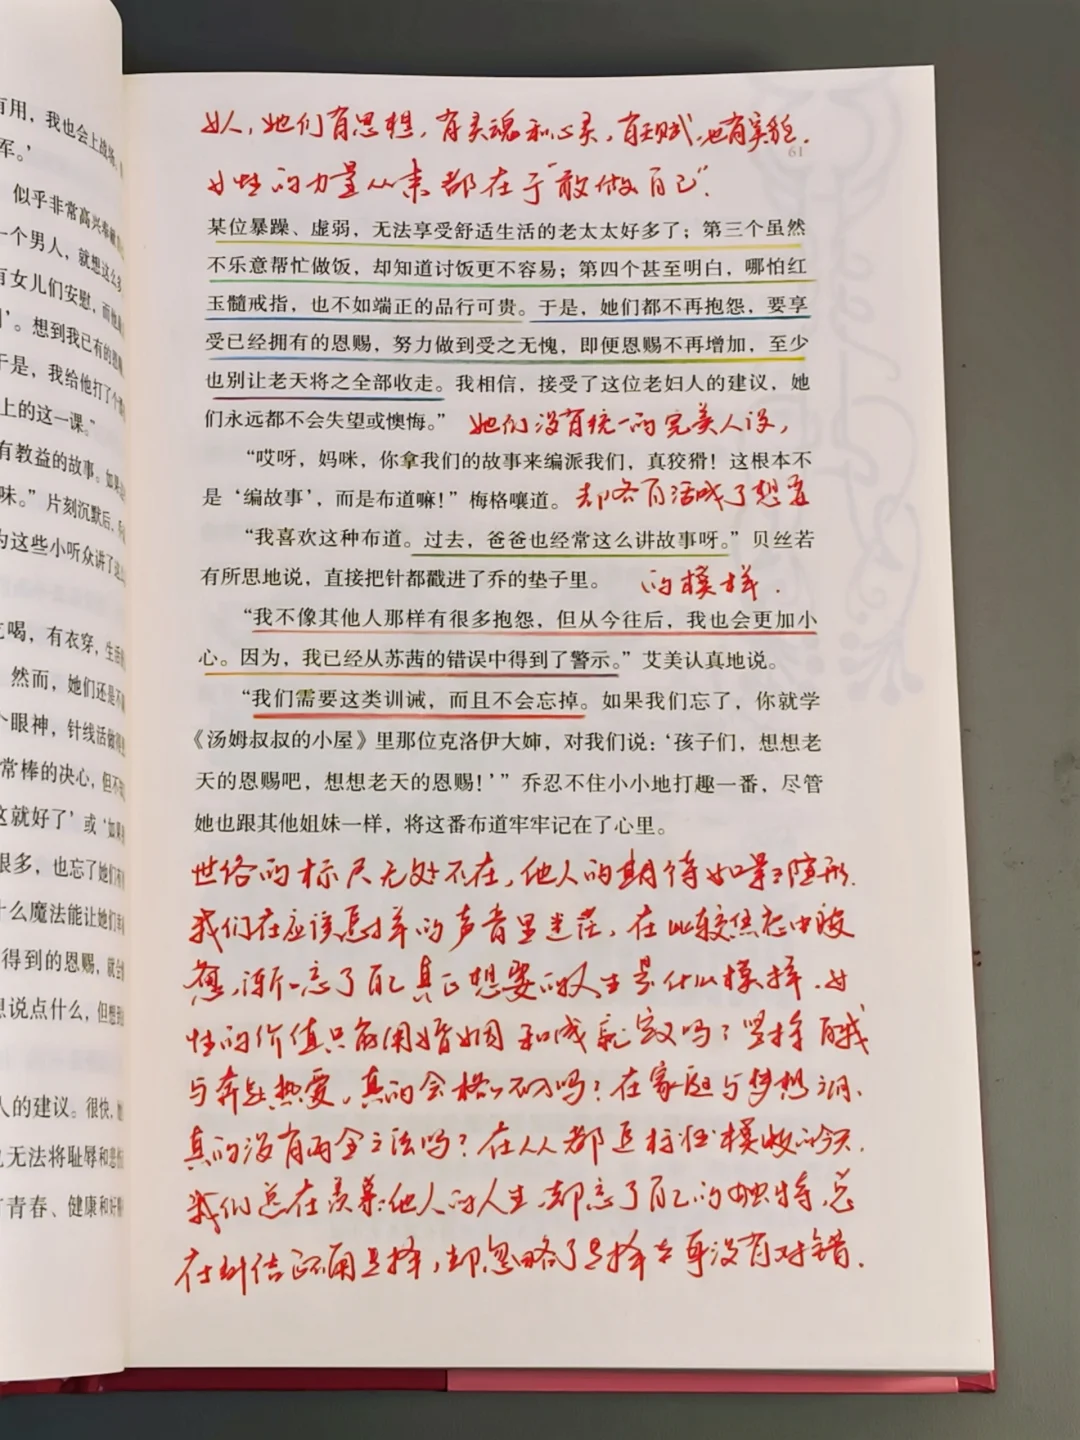 有用，我也会上战场，
军。’
似乎非常高兴奉献
一个男人，就想这么多
有女儿们安慰，而他
’。想到我已有的恩
于是，我给他打了个
上的这一课。”
有教益的故事。如果
味。”片刻沉默后，乔
为这些小听众讲了
吃喝，有衣穿，生活
然而，她们还是不
个眼神，针线活做得
常棒的决心，但不
这就好了’或‘如果
很多，也忘了她们有
什么魔法能让她们幸
得到的恩赐，就会
想说点什么，但想到
人的建议。很快，她
也无法将耻辱和悲伤
有青春、健康和好
女人，她们有思想，有灵魂和心灵，有天赋，也有美貌.
61
女性的力量从来都在于“敢做自己”.
某位暴躁、虚弱，无法享受舒适生活的老太太好多了；第三个虽然
不乐意帮忙做饭，却知道讨饭更不容易；第四个甚至明白，哪怕红
玉髓戒指，也不如端正的品行可贵。于是，她们都不再抱怨，要享
受已经拥有的恩赐，努力做到受之无愧，即便恩赐不再增加，至少
也别让老天将之全部收走。我相信，接受了这位老妇人的建议，她
们永远都不会失望或懊悔。” 她们没有统一的完美人设，
“哎呀，妈咪，你拿我们的故事来编派我们，真狡猾！这根本不
是‘编故事’，而是布道嘛！”梅格嚷道。 却各自活成了想要
“我喜欢这种布道。过去，爸爸也经常这么讲故事呀。”贝丝若
有所思地说，直接把针都戳进了乔的垫子里。 的模样.
“我不像其他人那样有很多抱怨，但从今往后，我也会更加小
心。因为，我已经从苏茜的错误中得到了警示。”艾美认真地说。
“我们需要这类训诫，而且不会忘掉。如果我们忘了，你就学
《汤姆叔叔的小屋》里那位克洛伊大婶，对我们说：‘孩子们，想想老
天的恩赐吧，想想老天的恩赐！’”乔忍不住小小地打趣一番，尽管
她也跟其他姐妹一样，将这番布道牢牢记在了心里。
世俗的标尺无处不在，他人的期待如影随形.
我们在应该怎样的声音里迷茫，在比较焦态中疲
惫，渐渐忘了自己真正想要的人生是什么模样.女
性的价值只能用婚姻和成就定义吗？坚持自我
与奔赴热爱，真的会格格不入吗？在家庭与梦想之间.
真的没有两全之法吗？在人人都追标准模板的今天.
我们总在羡慕他人的人生，却忘了自己的独特，总
在纠结正确选择，却忽略了选择本身没有对错.